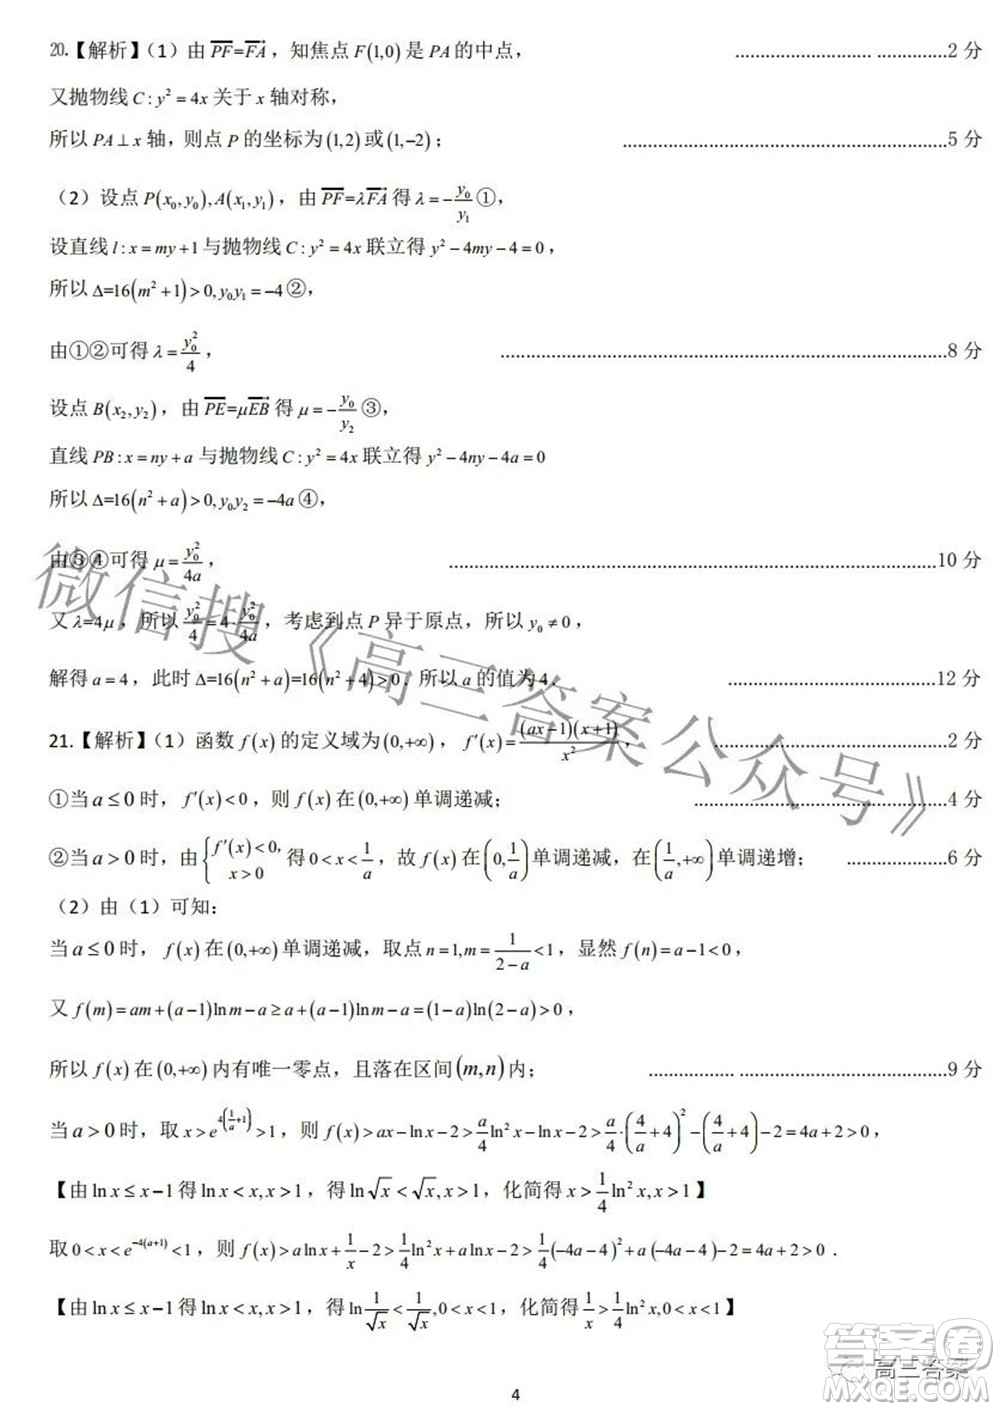 20.【解析】（1）由 PF=FA，知焦点 F(1,0) 是 PA 的中点， ........................... ..............2 分
又抛物线 C : y² = 4x 关于 x 轴对称，
所以 PA ⊥ x 轴，则点 P 的坐标为 (1,2) 或 (1,−2)； .................................................................5 分
（2）设点 P(x₀,y₀), A(x₁,y₁)，由 PF=λFA 得 λ = −y₀/y₁ ①，
设直线 l : x = my+1 与抛物线 C : y² = 4x 联立得 y² − 4my − 4 = 0，
所以 Δ=16(m²+1)>0, y₀y₁ = −4 ②，
由①②可得 λ = y₀²/4， .........................................................................................8 分
设点 B(x₂,y₂)，由 PE=μEB 得 μ = −y₀/y₂ ③，
直线 PB : x = ny + a 与抛物线 C : y² = 4x 联立得 y² − 4ny − 4a = 0
所以 Δ=16(n²+a)>0, y₀y₂ = −4a ④，
由③④可得 μ = y₀²/4a， ..................................................................................................10 分
又 λ=4μ，所以 y₀²/4 = 4·y₀²/4a，考虑到点 P 异于原点，所以 y₀ ≠ 0，
解得 a = 4，此时 Δ=16(n²+a)=16(n²+4)>0. 所以 a 的值为 4. .........................................12 分
21.【解析】（1）函数 f(x) 的定义域为 (0,+∞)，f′(x)=(ax−1)(x+1)/x²， ...............................................2 分
①当 a ≤ 0 时，f′(x)<0，则 f(x) 在 (0,+∞) 单调递减； ..................................................4 分
②当 a > 0 时，由 {f′(x)<0, x>0 得 0 < x < 1/a，故 f(x) 在 (0,1/a) 单调递减，在 (1/a,+∞) 单调递增； ....................6 分
（2）由（1）可知：
当 a ≤ 0 时，f(x) 在 (0,+∞) 单调递减，取点 n = 1, m = 1/(2−a) < 1，显然 f(n) = a − 1 < 0，
又 f(m) = am + (a−1)ln m − a ≥ a + (a−1)ln m − a = (1−a)ln(2−a) > 0，
所以 f(x) 在 (0,+∞) 内有唯一零点，且落在区间 (m,n) 内； ................. ...............................................9 分
当 a > 0 时，取 x > e^{4(1/a+1)} > 1，则 f(x) > ax − ln x − 2 > a/4 ln²x − ln x − 2 > a/4·(4/a+4)² − (4/a+4) − 2 = 4a + 2 > 0，
【由 ln x ≤ x−1 得 ln x < x, x > 1，得 ln√x < √x, x > 1，化简得 x > 1/4 ln²x, x > 1】
取 0 < x < e^{−4(a+1)} < 1，则 f(x) > a ln x + 1/x − 2 > 1/4 ln²x + a ln x − 2 > 1/4(−4a−4)² + a(−4a−4) − 2 = 4a + 2 > 0．
【由 ln x ≤ x−1 得 ln x < x, x > 1，得 ln 1/√x < 1/√x, 0 < x < 1，化简得 1/x > 1/4 ln²x, 0 < x < 1】
4
微信搜《高三答案公众号》
高三答案
答案卷
MXQE.COM